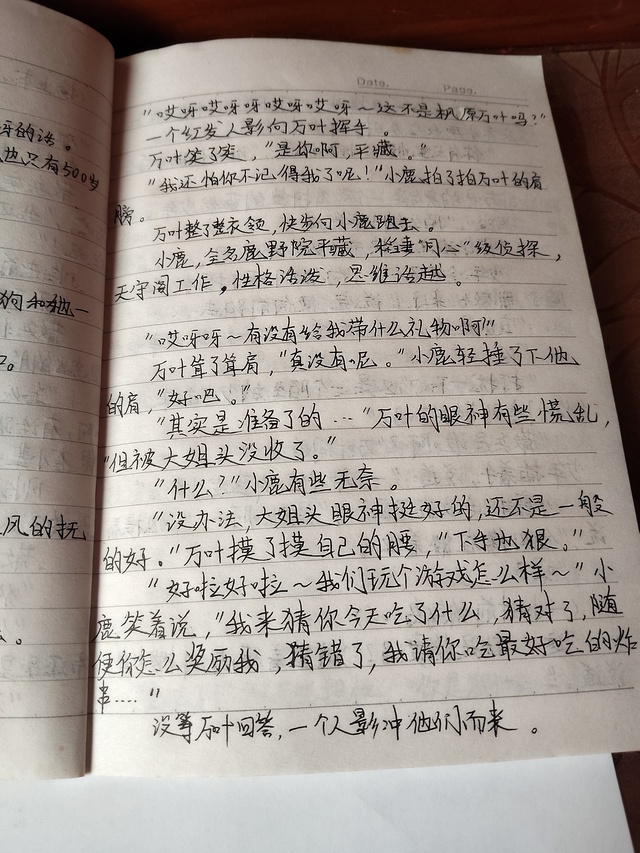 呀的话。
也只有500岁
狗和他一
风的抚
Date.
Page.
"哎呀哎呀呀哎呀哎呀~这不是枫原万叶吗?"
一个红发人影向万叶挥手。
万叶笑了笑,"是你啊,平藏。"
"我还怕你不记得我了呢!"小鹿拍了拍万叶的肩
膀。
万叶整了整衣领,快步向小鹿跑去。
小鹿,全名鹿野院平藏,稻妻"同心"级侦探,
天守阁工作,性格活泼,思维活越。
"哎呀呀~有没有给我带什么礼物啊!"
万叶耸了耸肩,"真没有呢。"小鹿轻捶了下他
的肩,"好吧。"
"其实是准备了的…"万叶的眼神有些慌乱,
"但被大姐头没收了。"
"什么?"小鹿有些无奈。
"没办法,大姐头眼神挺好的,还不是一般
的好。"万叶摸了摸自己的腰,"下手也狠。"
"好啦好啦~我们玩个游戏怎么样~"小
鹿笑着说,"我来猜你今天吃了什么,猜对了,随
便你怎么奖励我,猜错了,我请你吃最好吃的炸
串...."
没等万叶回答,一个人影冲他们小而来。